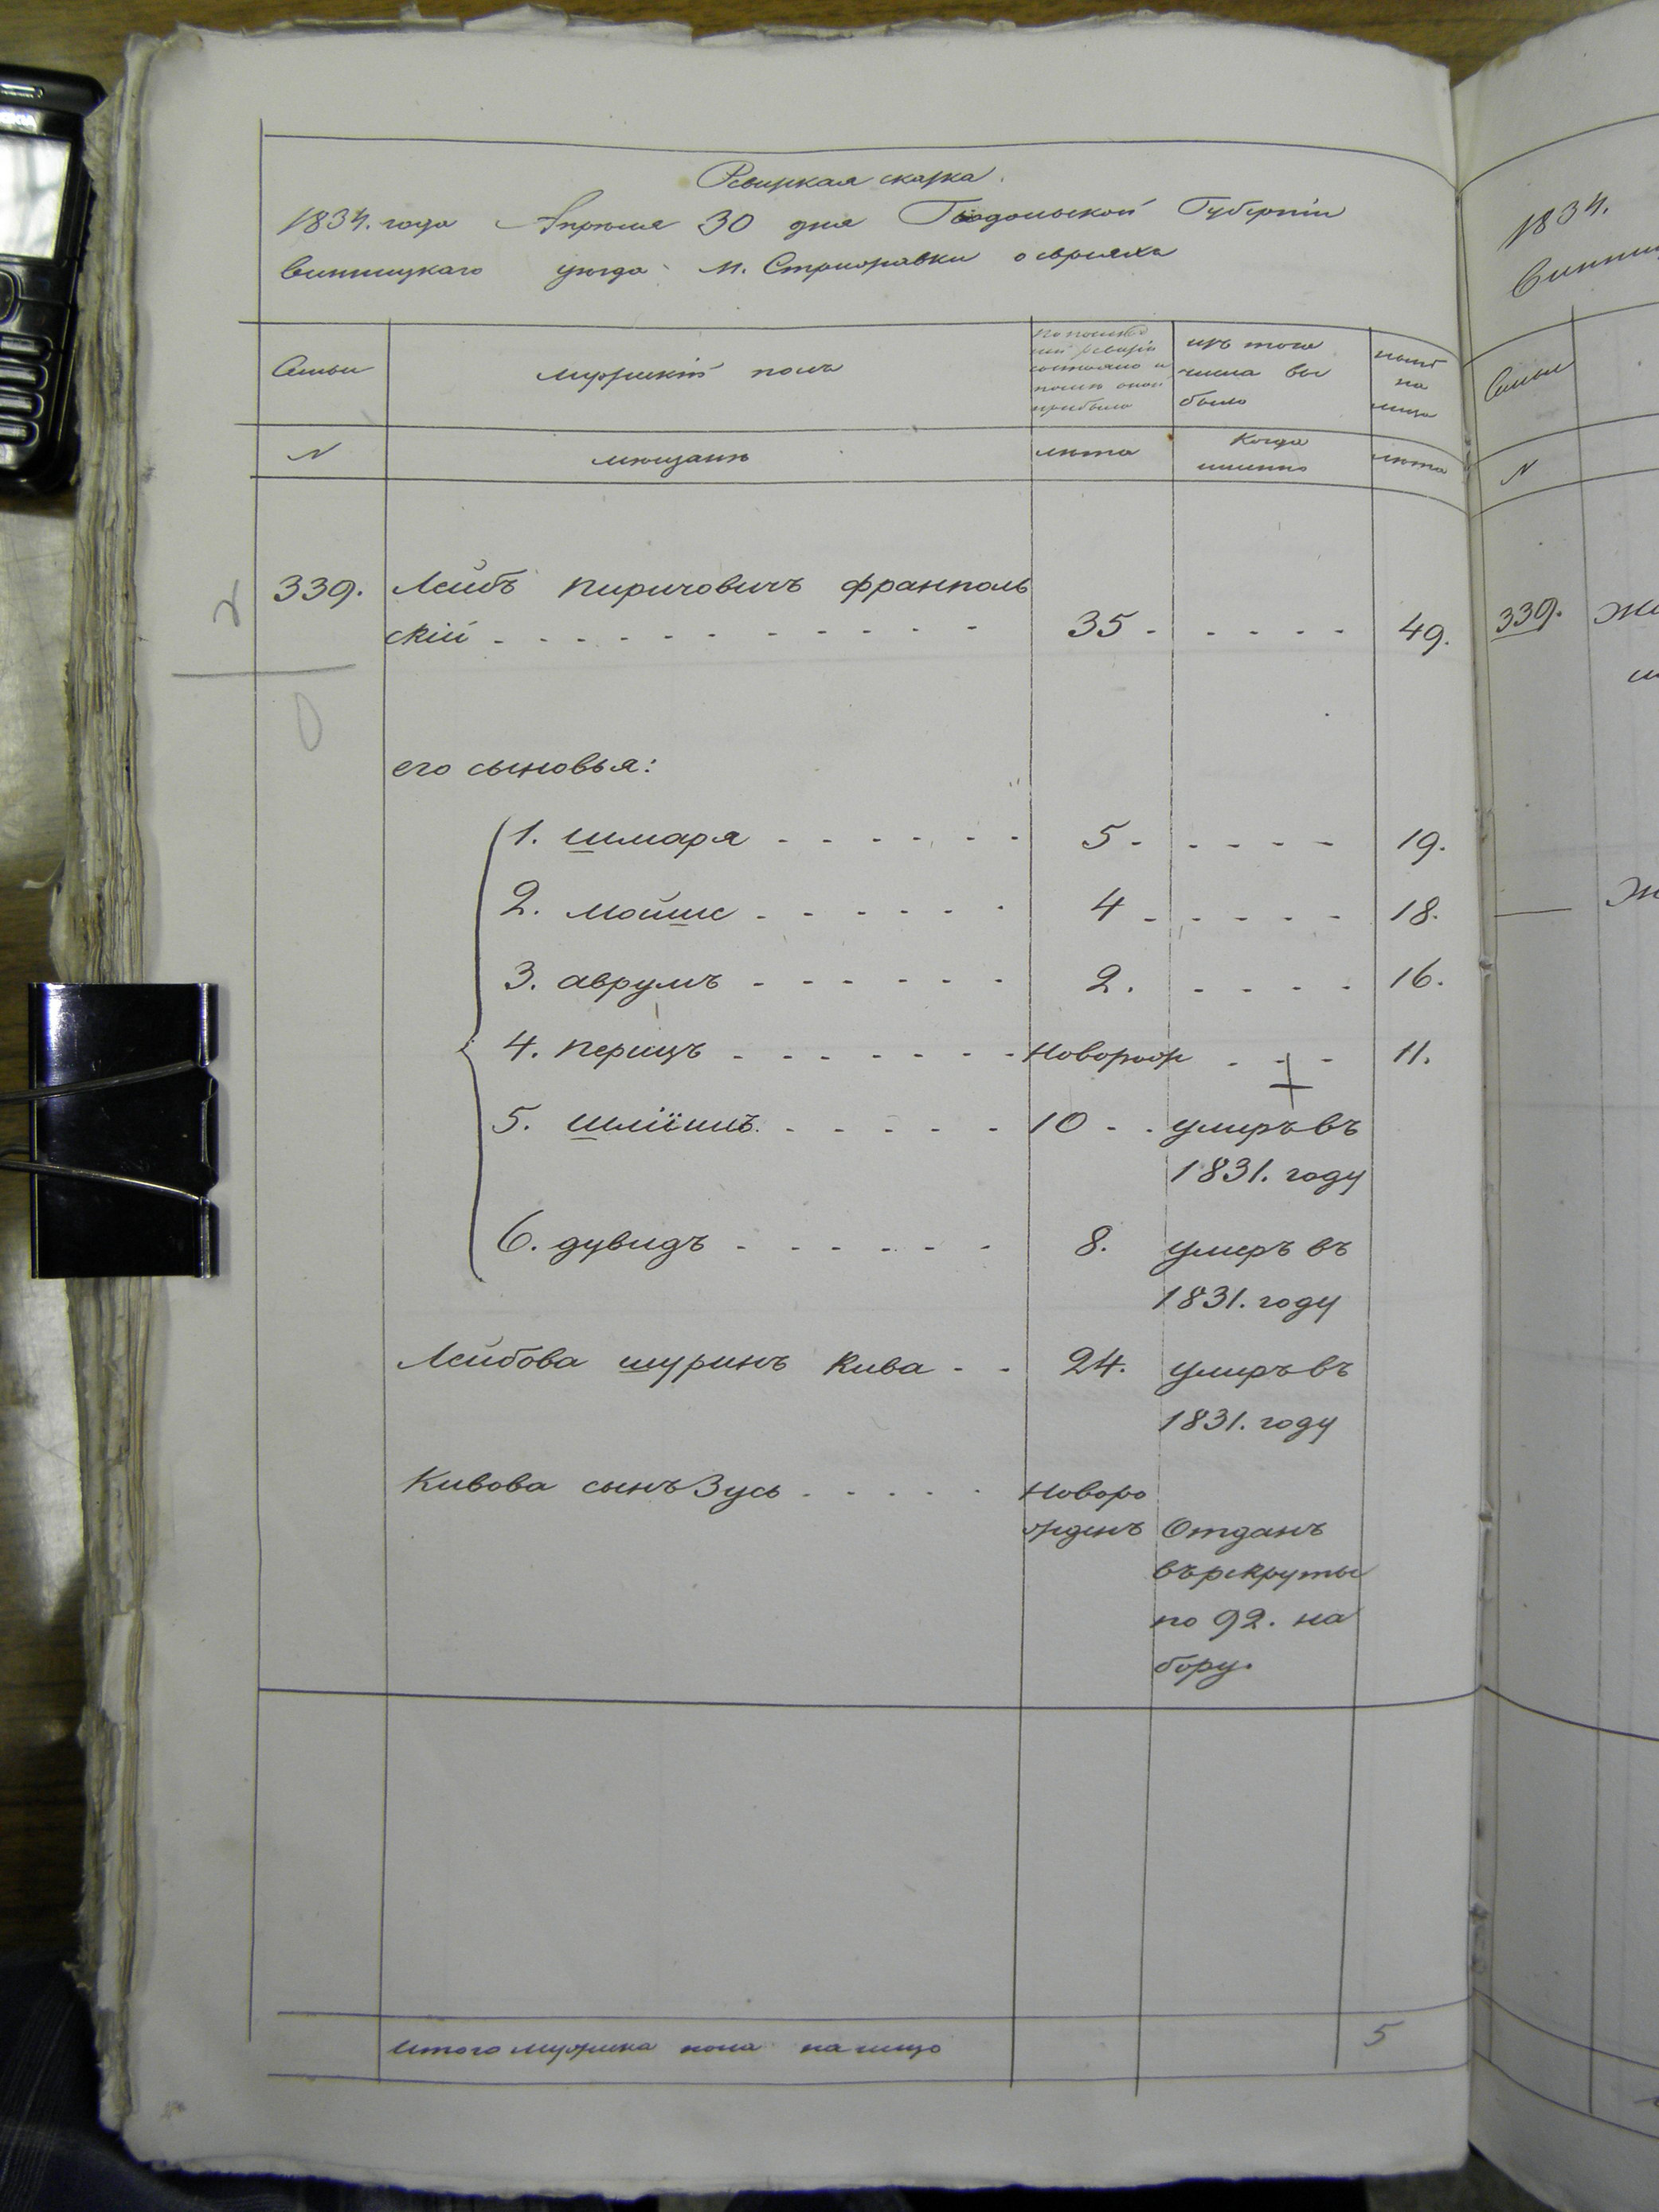 Ревизкая сказка.
1834. года Апреля 30 дня Подольской Губернiи
Винницкаго уезда м. Стрижавки о евреяхъ
Семьи
мужескiй полъ
По послѣд
ней ревизiи
состояло и
после оной
прибыло
изъ того
числа вы
было
нынѣ
на
лицо
N
мещане
лета
Когда
именно
лета
339. Лейбъ Пирицовичъ Франполь
скiй - - - - - - - - - - - 35 - - - - - 49.
его сыновья:
1. Шмаря - - - - - - 5 - - - - - 19.
2. Мойше - - - - - - 4 - - - - - 18.
3. аврумъ - - - - - - 2. - - - - 16.
4. перицъ - - - - - - -Новорож - - - 11.
5. - - - - - 10 - - умеръ въ
1831. году
6. дувидъ - - - - - - 8. умеръ въ
1831. году
Лейбова шуринъ Кива - - 24. умеръ въ
1831. году
Кивова сынъ Зусь - - - - - Новоро
жденъ Отданъ
въ рекруты
по 92. на
бору.
Итого мужеска пола на лицо 5
1834.
Винни
Семьи
N
339. Же
Же